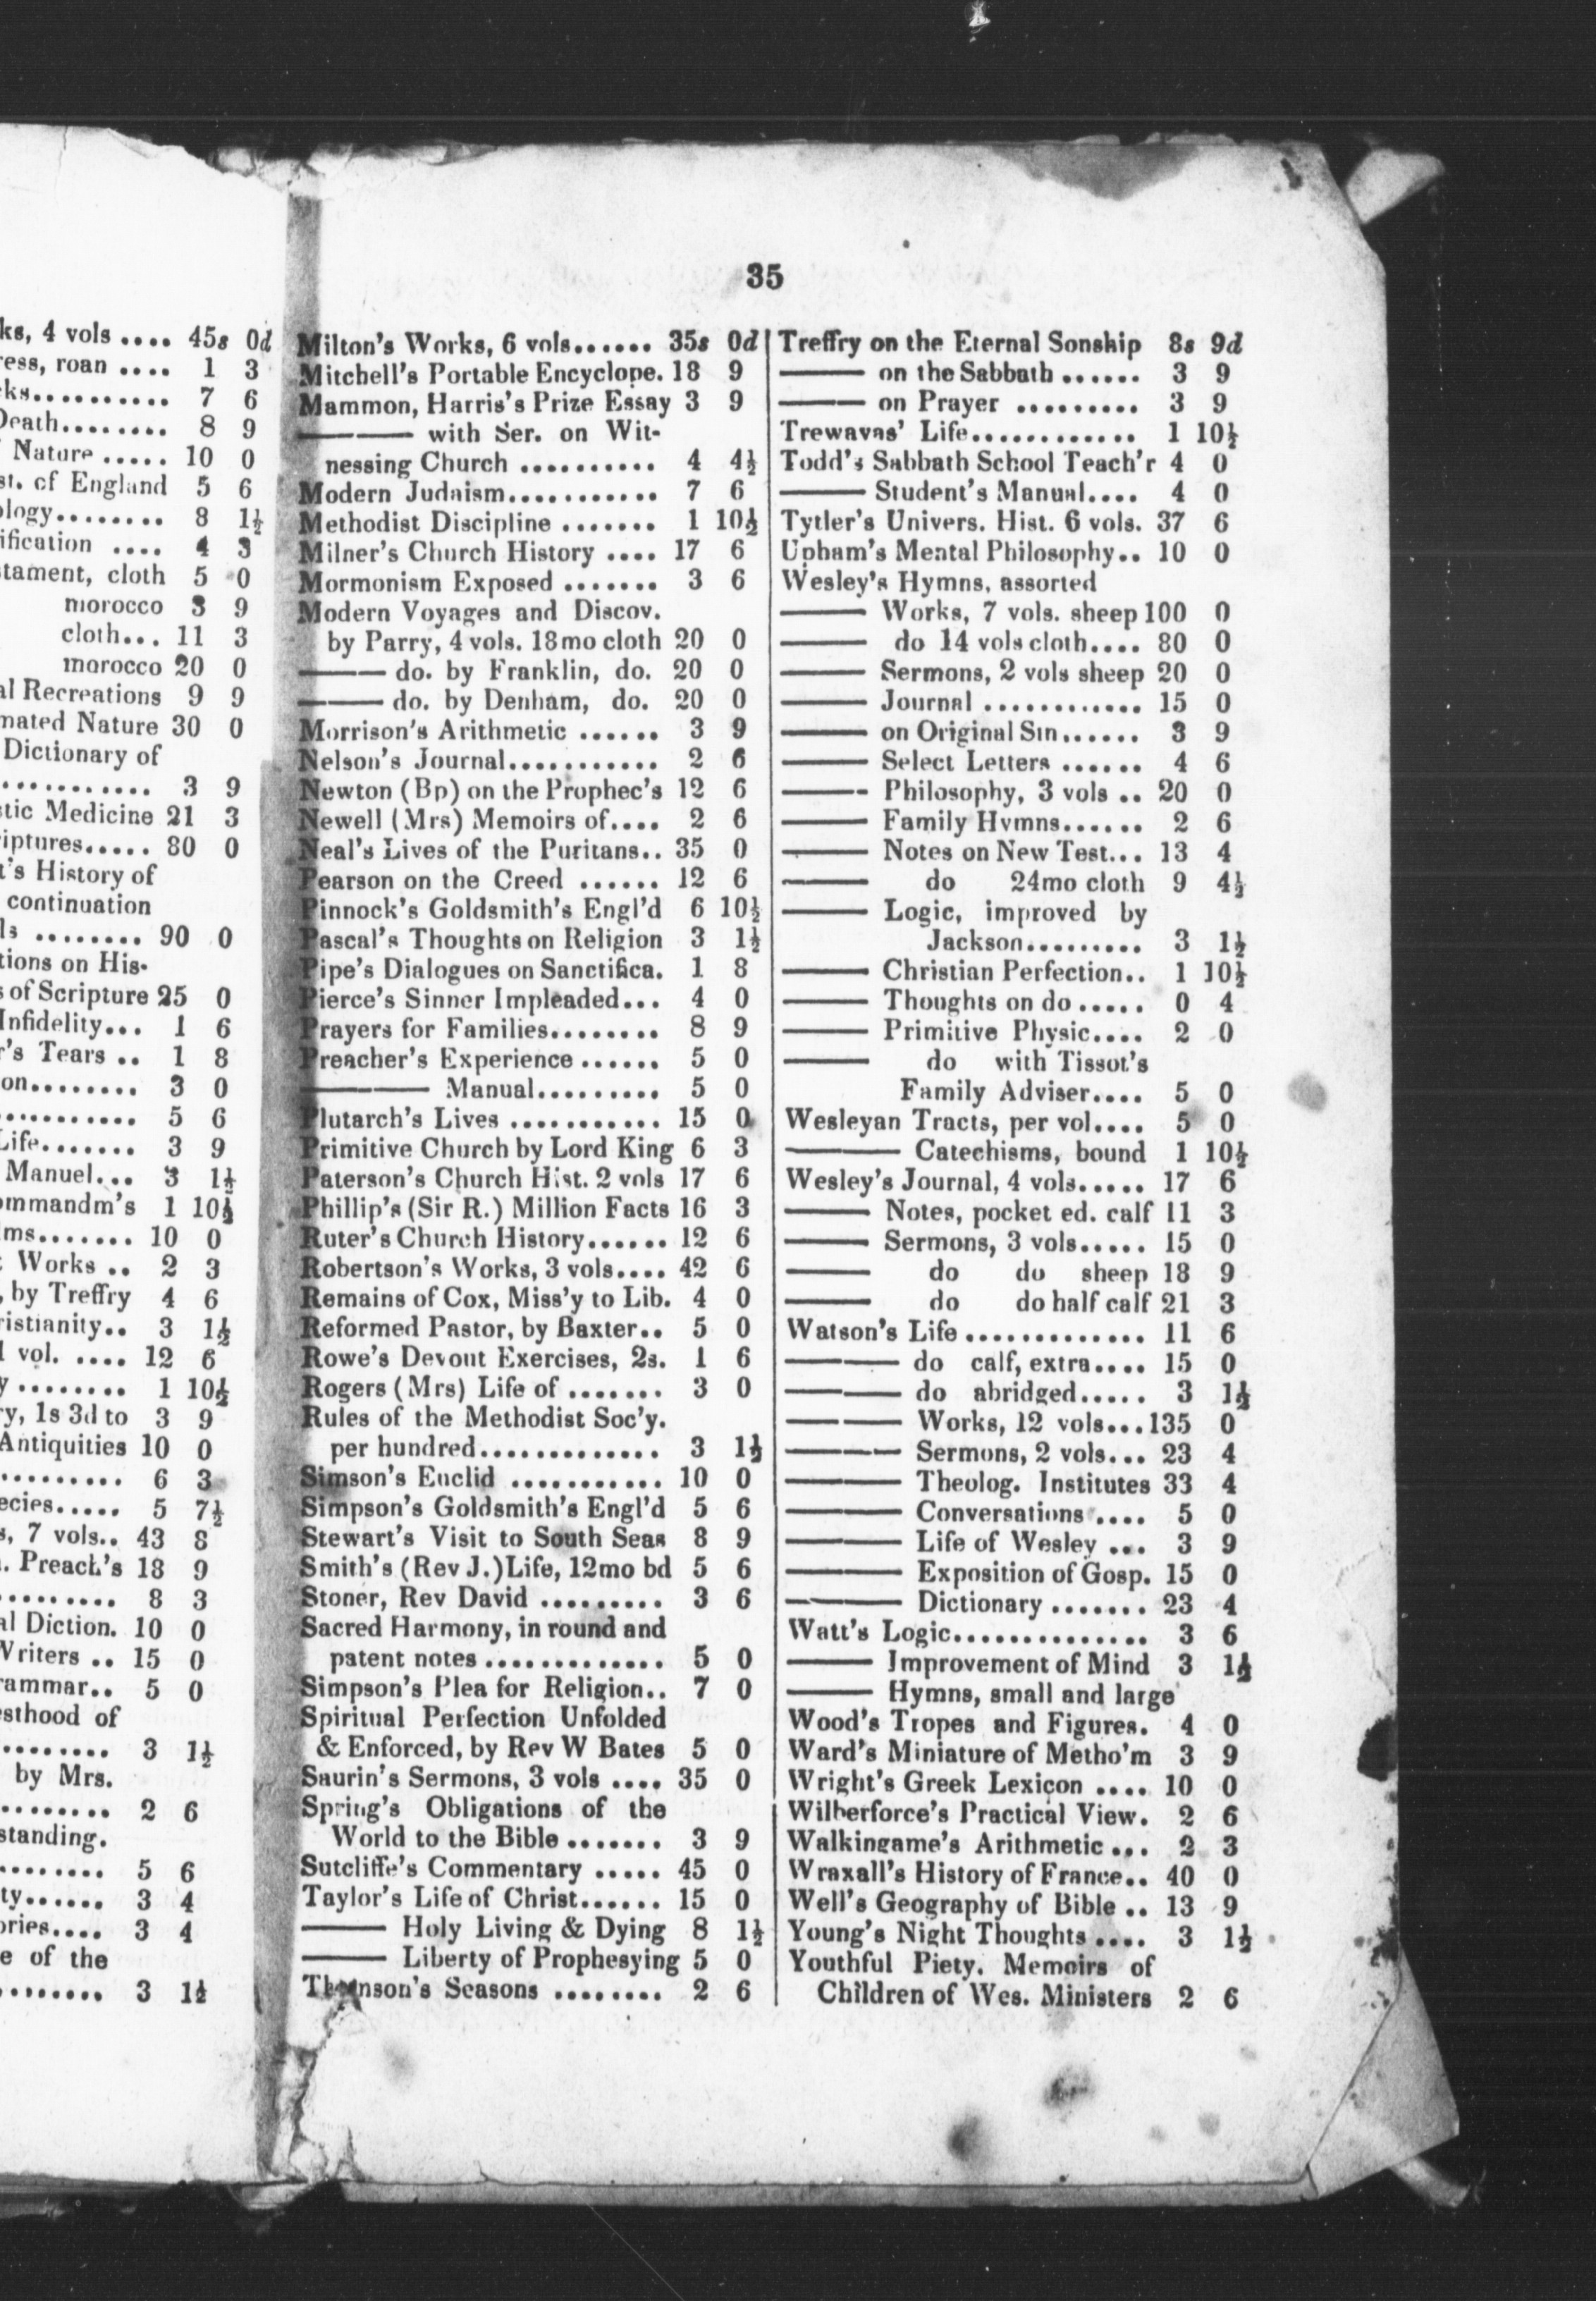 35
ks, 4 vols .... 45s 0d
ress, roan .... 1 3
ks.......... 7 6
Death........ 8 9
Nature ..... 10 0
st. of England 5 6
ology........ 8 1½
ification .... 4 3
tament, cloth 5 0
morocco 3 9
cloth... 11 3
morocco 20 0
al Recreations 9 9
mated Nature 30 0
Dictionary of
............ 3 9
stic Medicine 21 3
iptures..... 80 0
t's History of
continuation
ls ........ 90 0
tions on His-
s of Scripture 25 0
Infidelity... 1 6
r's Tears .. 1 8
on........ 3 0
........... 5 6
Life....... 3 9
Manuel... 3 1½
ommandm's 1 10½
ms....... 10 0
Works .. 2 3
, by Treffry 4 6
ristianity.. 3 1½
1 vol. .... 12 6
y ........ 1 10½
ry, 1s 3d to 3 9
Antiquities 10 0
......... 6 3
ecies..... 5 7½
s, 7 vols.. 43 8
. Preach's 18 9
......... 8 3
al Diction. 10 0
Writers .. 15 0
rammar.. 5 0
esthood of
........ 3 1½
by Mrs.
........ 2 6
standing.
........ 5 6
ty...... 3 4
ories.... 3 4
e of the
........ 3 1½
Milton's Works, 6 vols...... 35s 0d
Mitchell's Portable Encyclope. 18 9
Mammon, Harris's Prize Essay 3 9
——— with Ser. on Wit-
nessing Church .......... 4 4½
Modern Judaism........... 7 6
Methodist Discipline ....... 1 10½
Milner's Church History .... 17 6
Mormonism Exposed ....... 3 6
Modern Voyages and Discov.
by Parry, 4 vols. 18mo cloth 20 0
——— do. by Franklin, do. 20 0
——— do. by Denham, do. 20 0
Morrison's Arithmetic ...... 3 9
Nelson's Journal........... 2 6
Newton (Bp) on the Prophec's 12 6
Newell (Mrs) Memoirs of.... 2 6
Neal's Lives of the Puritans.. 35 0
Pearson on the Creed ...... 12 6
Pinnock's Goldsmith's Engl'd 6 10½
Pascal's Thoughts on Religion 3 1½
Pipe's Dialogues on Sanctifica. 1 8
Pierce's Sinner Impleaded... 4 0
Prayers for Families........ 8 9
Preacher's Experience ...... 5 0
——— Manual......... 5 0
Plutarch's Lives ........... 15 0
Primitive Church by Lord King 6 3
Paterson's Church Hist. 2 vols 17 6
Phillip's (Sir R.) Million Facts 16 3
Ruter's Church History...... 12 6
Robertson's Works, 3 vols.... 42 6
Remains of Cox, Miss'y to Lib. 4 0
Reformed Pastor, by Baxter.. 5 0
Rowe's Devout Exercises, 2s. 1 6
Rogers (Mrs) Life of ....... 3 0
Rules of the Methodist Soc'y.
per hundred............. 3 1½
Simson's Euclid ........... 10 0
Simpson's Goldsmith's Engl'd 5 6
Stewart's Visit to South Seas 8 9
Smith's (Rev J.) Life, 12mo bd 5 6
Stoner, Rev David ......... 3 6
Sacred Harmony, in round and
patent notes ............. 5 0
Simpson's Plea for Religion.. 7 0
Spiritual Perfection Unfolded
& Enforced, by Rev W Bates 5 0
Saurin's Sermons, 3 vols .... 35 0
Spring's Obligations of the
World to the Bible ....... 3 9
Sutcliffe's Commentary ..... 45 0
Taylor's Life of Christ...... 15 0
——— Holy Living & Dying 8 1½
——— Liberty of Prophesying 5 0
Thomson's Seasons ........ 2 6
Treffry on the Eternal Sonship 8s 9d
——— on the Sabbath ...... 3 9
——— on Prayer ......... 3 9
Trewavas' Life............ 1 10½
Todd's Sabbath School Teach'r 4 0
——— Student's Manual.... 4 0
Tytler's Univers. Hist. 6 vols. 37 6
Upham's Mental Philosophy.. 10 0
Wesley's Hymns, assorted
——— Works, 7 vols. sheep 100 0
——— do 14 vols cloth.... 80 0
——— Sermons, 2 vols sheep 20 0
——— Journal ............ 15 0
——— on Original Sin...... 3 9
——— Select Letters ...... 4 6
——— Philosophy, 3 vols .. 20 0
——— Family Hymns...... 2 6
——— Notes on New Test... 13 4
——— do 24mo cloth 9 4½
——— Logic, improved by
Jackson......... 3 1½
——— Christian Perfection.. 1 10½
——— Thoughts on do ..... 0 4
——— Primitive Physic.... 2 0
——— do with Tissot's
Family Adviser.... 5 0
Wesleyan Tracts, per vol.... 5 0
——— Catechisms, bound 1 10½
Wesley's Journal, 4 vols..... 17 6
——— Notes, pocket ed. calf 11 3
——— Sermons, 3 vols..... 15 0
——— do do sheep 18 9
——— do do half calf 21 3
Watson's Life ............. 11 6
——— do calf, extra.... 15 0
——— do abridged..... 3 1½
——— Works, 12 vols...135 0
——— Sermons, 2 vols... 23 4
——— Theolog. Institutes 33 4
——— Conversations .... 5 0
——— Life of Wesley ... 3 9
——— Exposition of Gosp. 15 0
——— Dictionary ....... 23 4
Watt's Logic.............. 3 6
——— Improvement of Mind 3 1½
——— Hymns, small and large
Wood's Tropes and Figures. 4 0
Ward's Miniature of Metho'm 3 9
Wright's Greek Lexicon .... 10 0
Wilberforce's Practical View. 2 6
Walkingame's Arithmetic ... 2 3
Wraxall's History of France.. 40 0
Well's Geography of Bible .. 13 9
Young's Night Thoughts .... 3 1½
Youthful Piety. Memoirs of
Children of Wes. Ministers 2 6